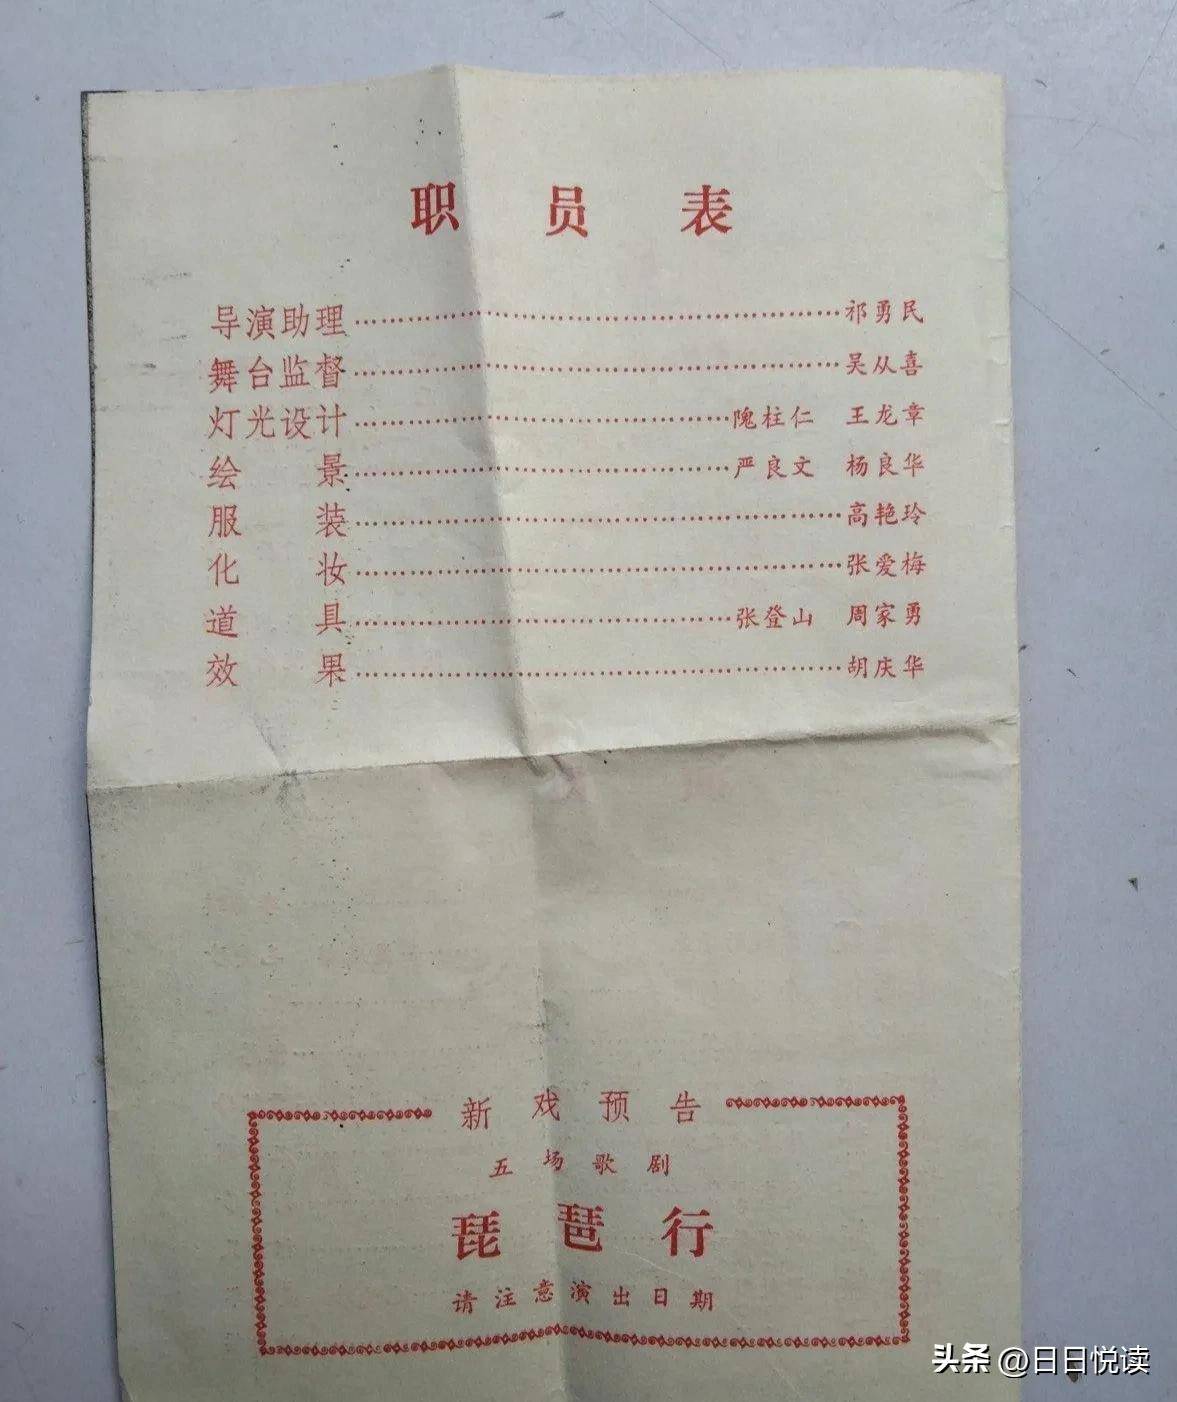 职员表
导演助理……………………………………………祁勇民
舞台监督……………………………………………吴从喜
灯光设计…………………………………隗柱仁 王龙章
绘景…………………………………严良文 杨良华
服装……………………………………………高艳玲
化妆……………………………………………张爱梅
道具…………………………………张登山 周家勇
效果……………………………………………胡庆华
新戏预告
五场歌剧
琵琶行
请注意演出日期
头条 @日日悦读